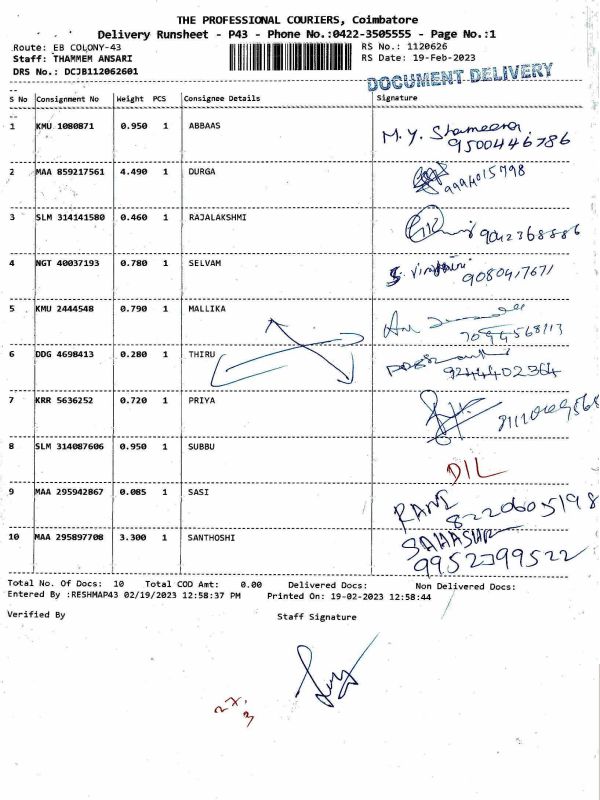 THE PROFESSIONAL COURIERS, Coimbatore
Delivery Runsheet - P43 - Phone No.:0422-3505555 - Page No.:1
Route: EB COLONY-43 RS No.: 1120626
Staff: THAMMEM ANSARI RS Date: 19-Feb-2023
DRS No.: DCJB112062601
DOCUMENT DELIVERY
S No Consignment No Weight PCS Consignee Details Signature
1 KMU 1080871 0.950 1 ABBAAS M. Y. Shameera
9500446786
2 MAA 859217561 4.490 1 DURGA 9994015798
3 SLM 314141580 0.460 1 RAJALAKSHMI 9042368886
4 NGT 40037193 0.780 1 SELVAM
9080417671
5 KMU 2444548 0.790 1 MALLIKA
7094568113
6 DDG 4698413 0.280 1 THIRU
9244402364
7 KRR 5636252 0.720 1 PRIYA
8 SLM 314087606 0.950 1 SUBBU DIL
9 MAA 295942867 0.085 1 SASI RANI
8220605198
10 MAA 295897708 3.300 1 SANTHOSHI
9952399522
Total No. Of Docs: 10 Total COD Amt: 0.00 Delivered Docs: Non Delivered Docs:
Entered By :RESHMAP43 02/19/2023 12:58:37 PM Printed On: 19-02-2023 12:58:44
Verified By Staff Signature